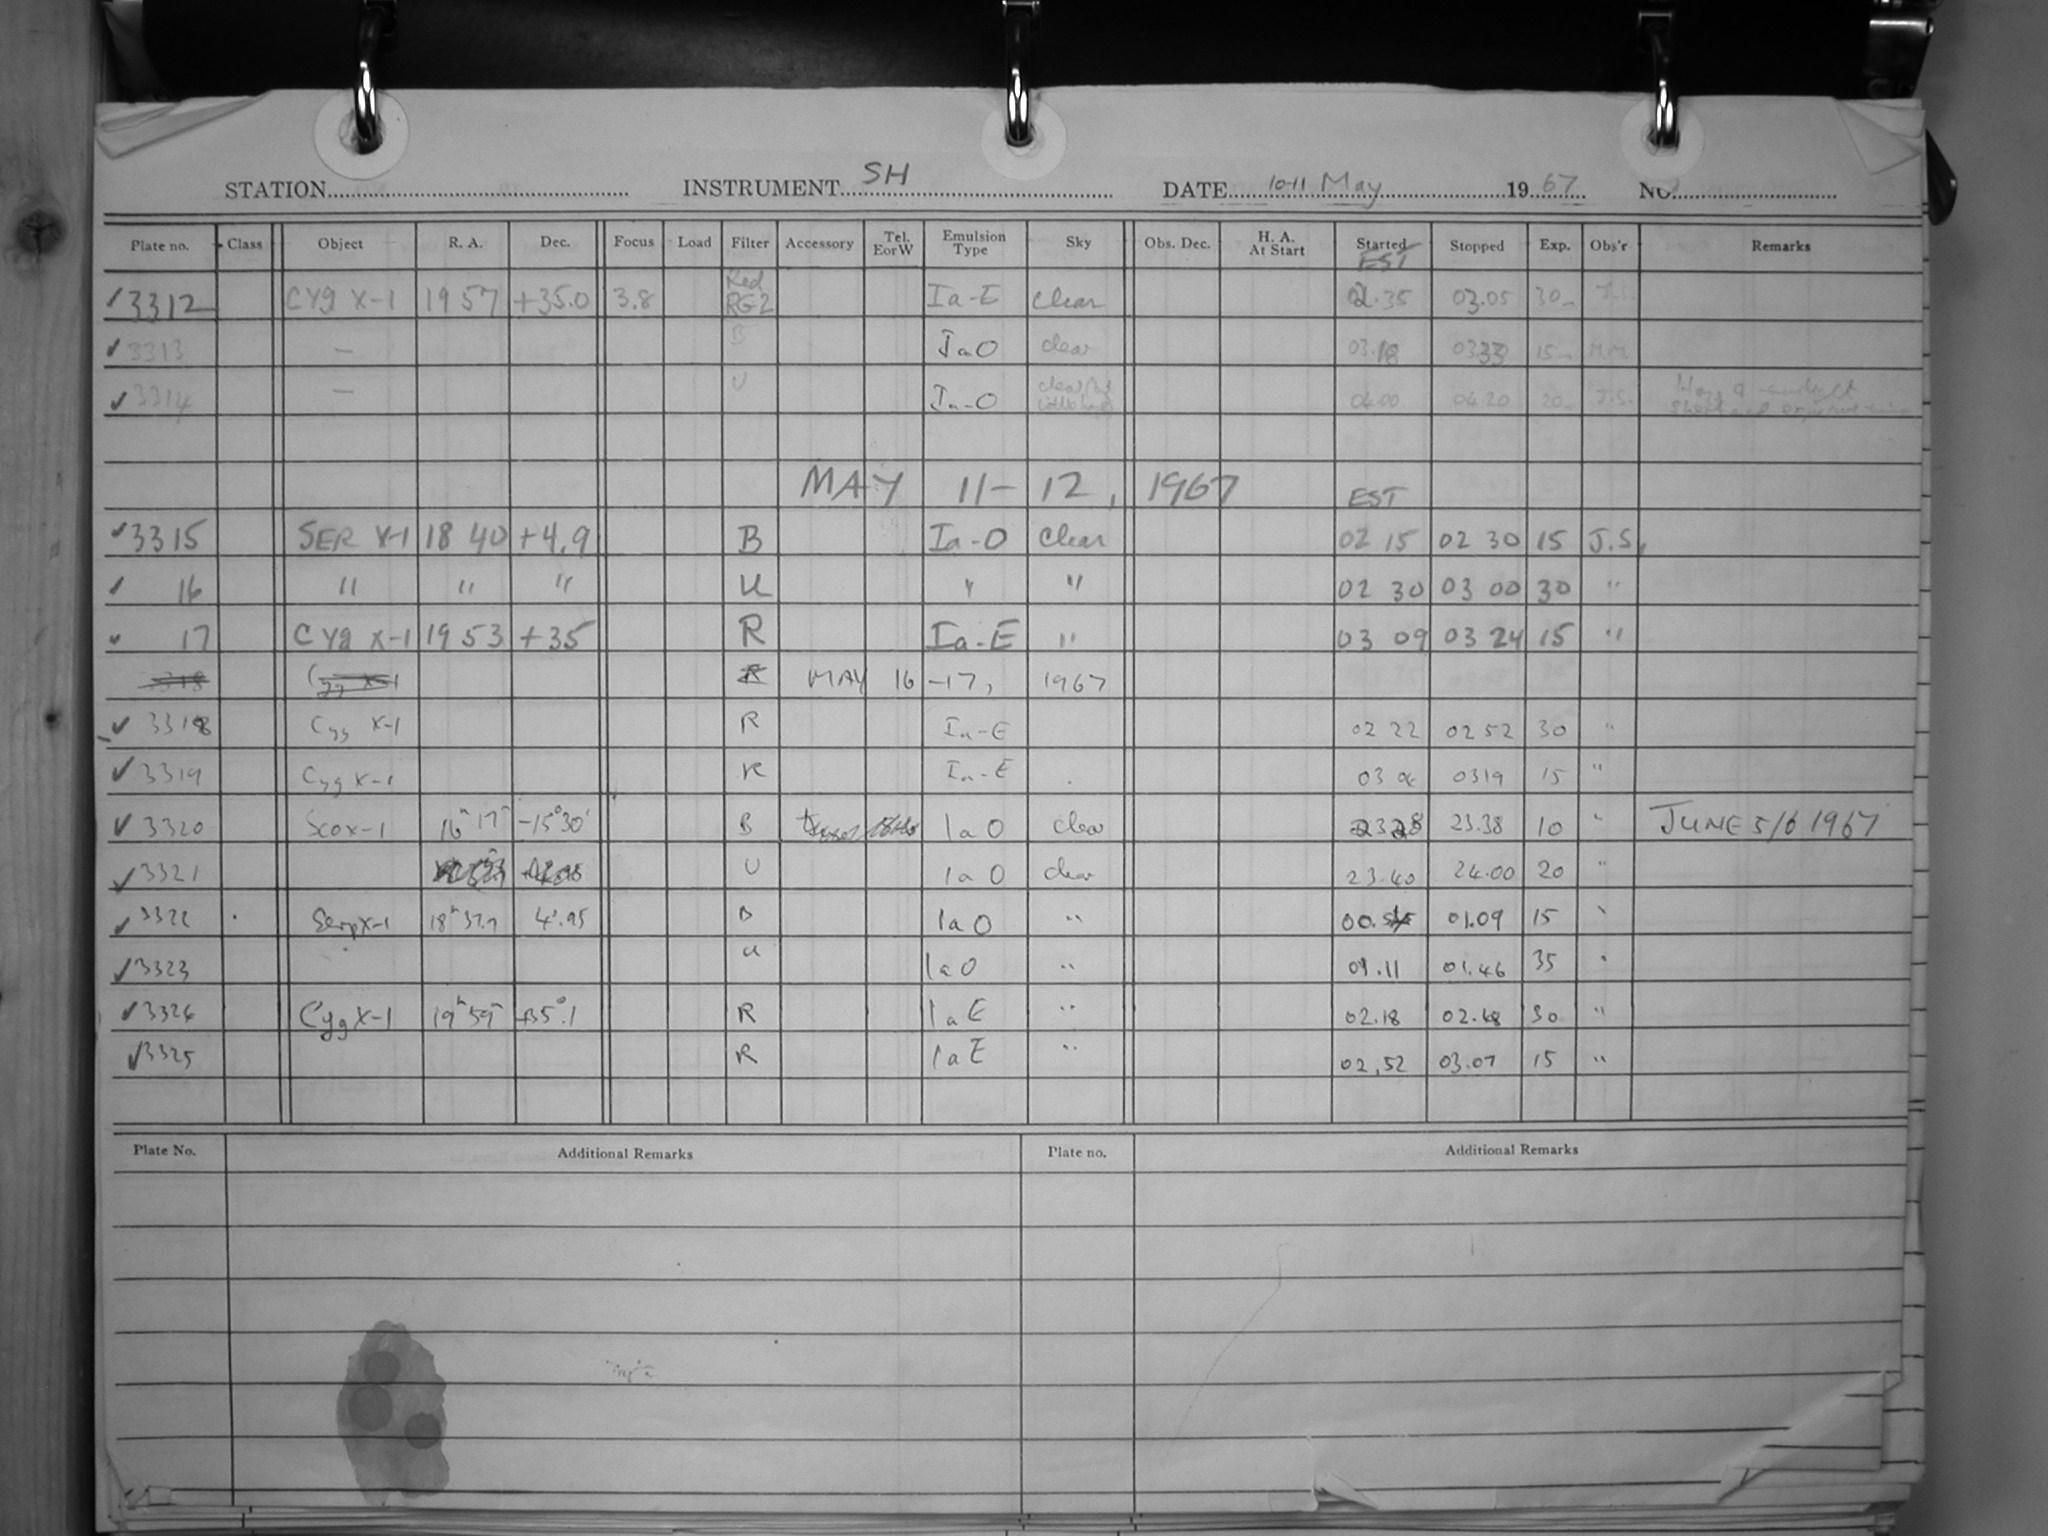 STATION INSTRUMENT SH DATE 10-11 May 1967 NO.
Plate no. Class Object R. A. Dec. Focus Load Filter Accessory Tel. EorW Emulsion Type Sky Obs. Dec. H. A. At Start Started EST Stopped Exp. Obs'r Remarks
✓3312 CYg X-1 19 57 +35.0 3.8 Red RG-2 Ia-E clear 02.35 03.05 30 J.S.
✓3313 — B IaO clear 03.18 0333 15 M.M.
✓3314 — U Ia-O 04.00 04.20 20 J.S.
MAY 11-12, 1967 EST
✓3315 SER X-1 18 40 +4.9 B Ia-O clear 02 15 02 30 15 J.S.
✓ 16 " " " U " " 02 30 03 00 30 "
✓ 17 CYg X-1 19 53 +35 R Ia-E " 03 09 03 24 15 "
MAY 16-17, 1967
✓3318 Cyg X-1 R Ia-E 02 22 02 52 30 "
✓3319 Cyg X-1 R Ia-E 03 0319 15 "
✓3320 Sco x-1 16ʰ 17ᵐ -15°30' B IaO clear 2328 23.38 10 " JUNE 5/6 1967
✓3321 U IaO clear 23.40 24.00 20 "
✓3322 Serp X-1 18ʰ 37.7 4°.95 B IaO " 00.54 01.09 15 "
✓3323 U IaO " 01.11 01.46 35 "
✓3324 Cyg X-1 19ʰ 59ᵐ +35°.1 R IaE " 02.18 02.48 30 "
✓3325 R IaE " 02.52 03.07 15 "
Plate No. Additional Remarks Plate no. Additional Remarks